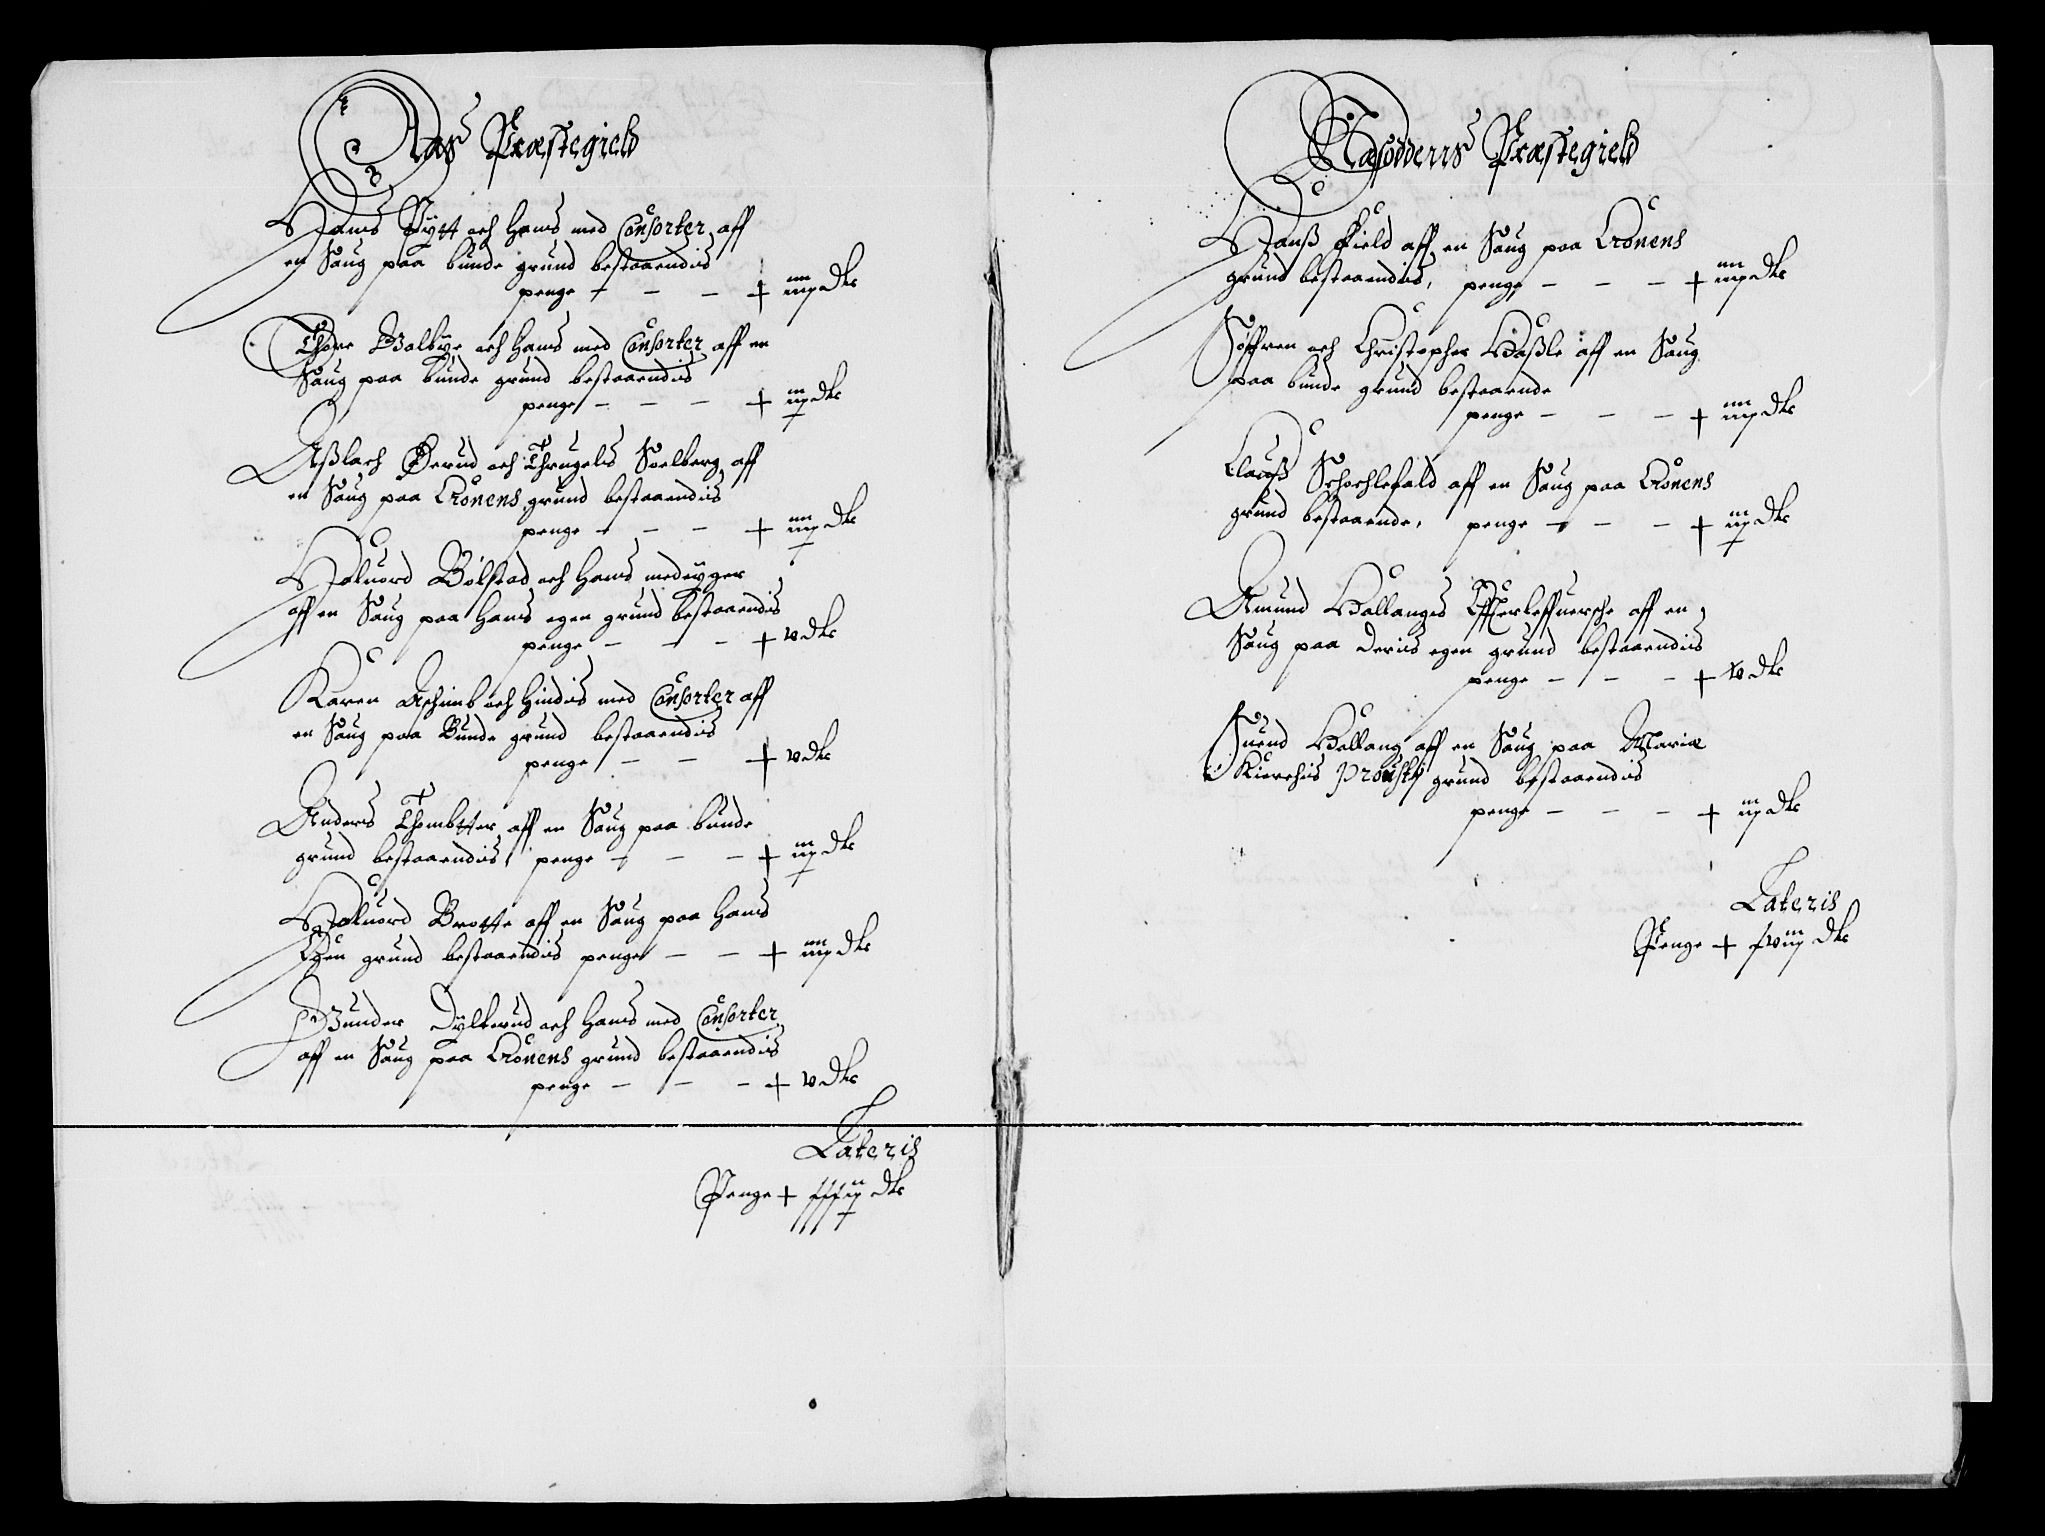 Aas Præstegield
Hans Pytt och hans med Consorter aff
en Saug paa bunde grund bestaaendis
penge - - - + iiij Dlr
Thore Galbye och hans med Consorter aff en
Saug paa bunde grund bestaaendis
penge - - - + iij Dlr
Aßlach Gerud och Thrugels Soelberg aff
en Saug paa Cronens grund bestaaendis
penge - - - + iiij Dlr
Haluord Bölstad och hans medeyger
aff en Saug paa hans egen grund bestaaendis
penge - - - + v Dlr
Karen Aschimb och hindis med Consorter aff
en Saug paa Bunde grund bestaaendis
penge - - + v Dlr
Anders Thombtter aff en Saug paa bunde
grund bestaaendis penge - - - + iij Dlr
Haluord Brotte aff en Saug paa hans
Egen grund bestaaendis penge - - + iiij Dlr
Gunder Dyllerud och hans med Consorter
aff en Saug paa Cronens grund bestaaendis
penge - - - + v Dlr
Lateris
Penge + xxxij Dlr
Næsoddens Præstegield
Hanß Field aff en Saug paa Cronens
grund bestaaendis, penge - - - + iiij Dlr
Söffren och Christopher Haßle aff en Saug
paa bunde grund bestaaende
penge - - - + iiij Dlr
Clauß Schochlefald aff en Saug paa Cronens
grund bestaaende, penge - - - + iij Dlr
Amund Hallanges Effterleffuersche aff en
Saug paa deris egen grund bestaaendis
penge - - - + v Dlr
Suend Hallang aff en Saug paa Mariæ
Kierchis Proustj grund bestaaendis
penge - - - + iij Dlr
Lateris
Penge + xviij Dlr